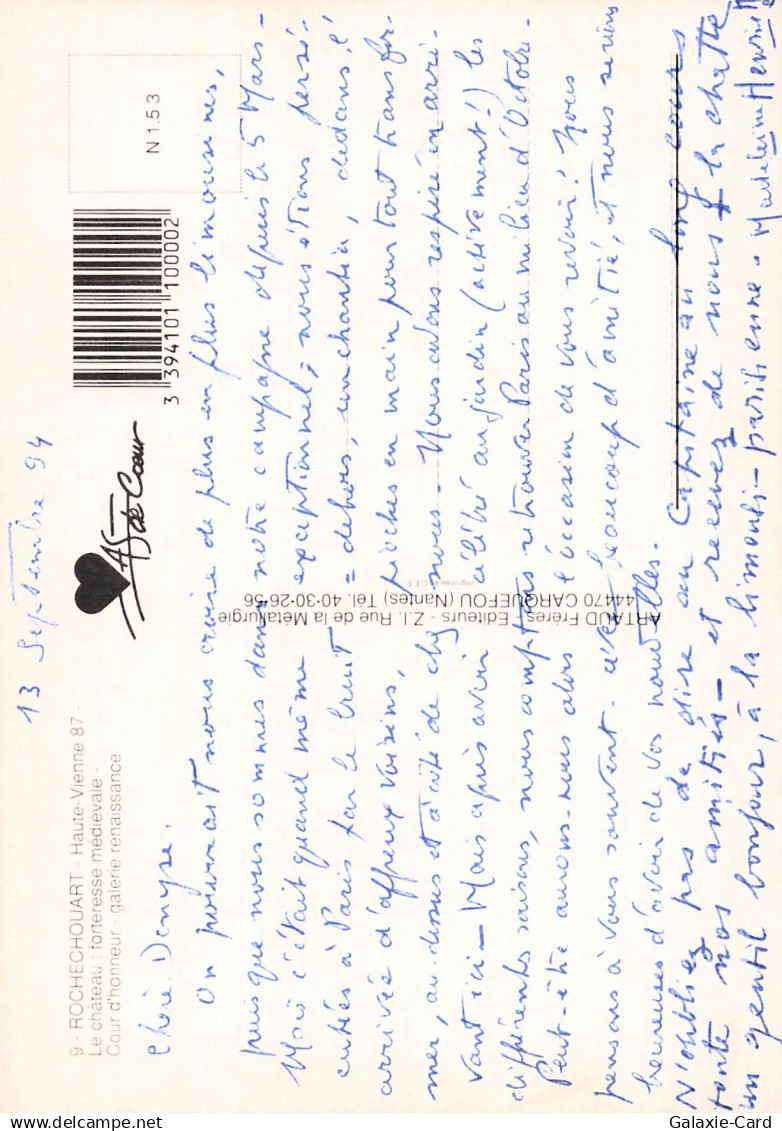 13 Septembre 94
9 - ROCHECHOUART - Haute-Vienne 87 -
Le château : forteresse médiévale -
Cour d'honneur - galerie renaissance
AS de Cœur
3 394101 100002
N 153
ARTAUD Frères - Editeurs - Z.I. Rue de la Métallurgie
44470 CARQUEFOU (Nantes) Tél. 40-30-26-56
Imprimé en C.E.E.
Chère Denyse.
On pourrait nous croire de plus en plus limousines,
puisque nous sommes dans notre campagne depuis le 5 Mars -
Mais c'était quand même exceptionnel ; nous étions persé-
cutées à Paris par le bruit = dehors, un chantier, dedans, l'
arrivée d'affreux voisins, pioches en main pour tout transfor-
mer, au dessus et à côté de chez nous - Nous avons respiré en arri-
vant ici - Mais après avoir célébré au jardin (activement !) les
différentes saisons, nous comptons retrouver Paris au milieu d'Octobre -
Peut-être aurons-nous alors l'occasion de vous revoir ! Nous
pensons à vous souvent. avec beaucoup d'amitié, et nous serions
heureuses d'avoir de vos nouvelles.
N'oubliez pas de dire au Capitaine au long cours
toute nos amitiés - et recevez de nous & la chatte
un gentil bonjour, à la limousi-parisienne. Madeleine Henriette
Galaxie-Card
Galaxie-Card